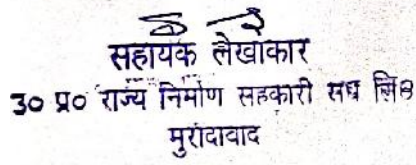 सहायक लेखाकार
उ० प्र० राज्य निर्माण सहकारी संघ लि०
मुरादाबाद